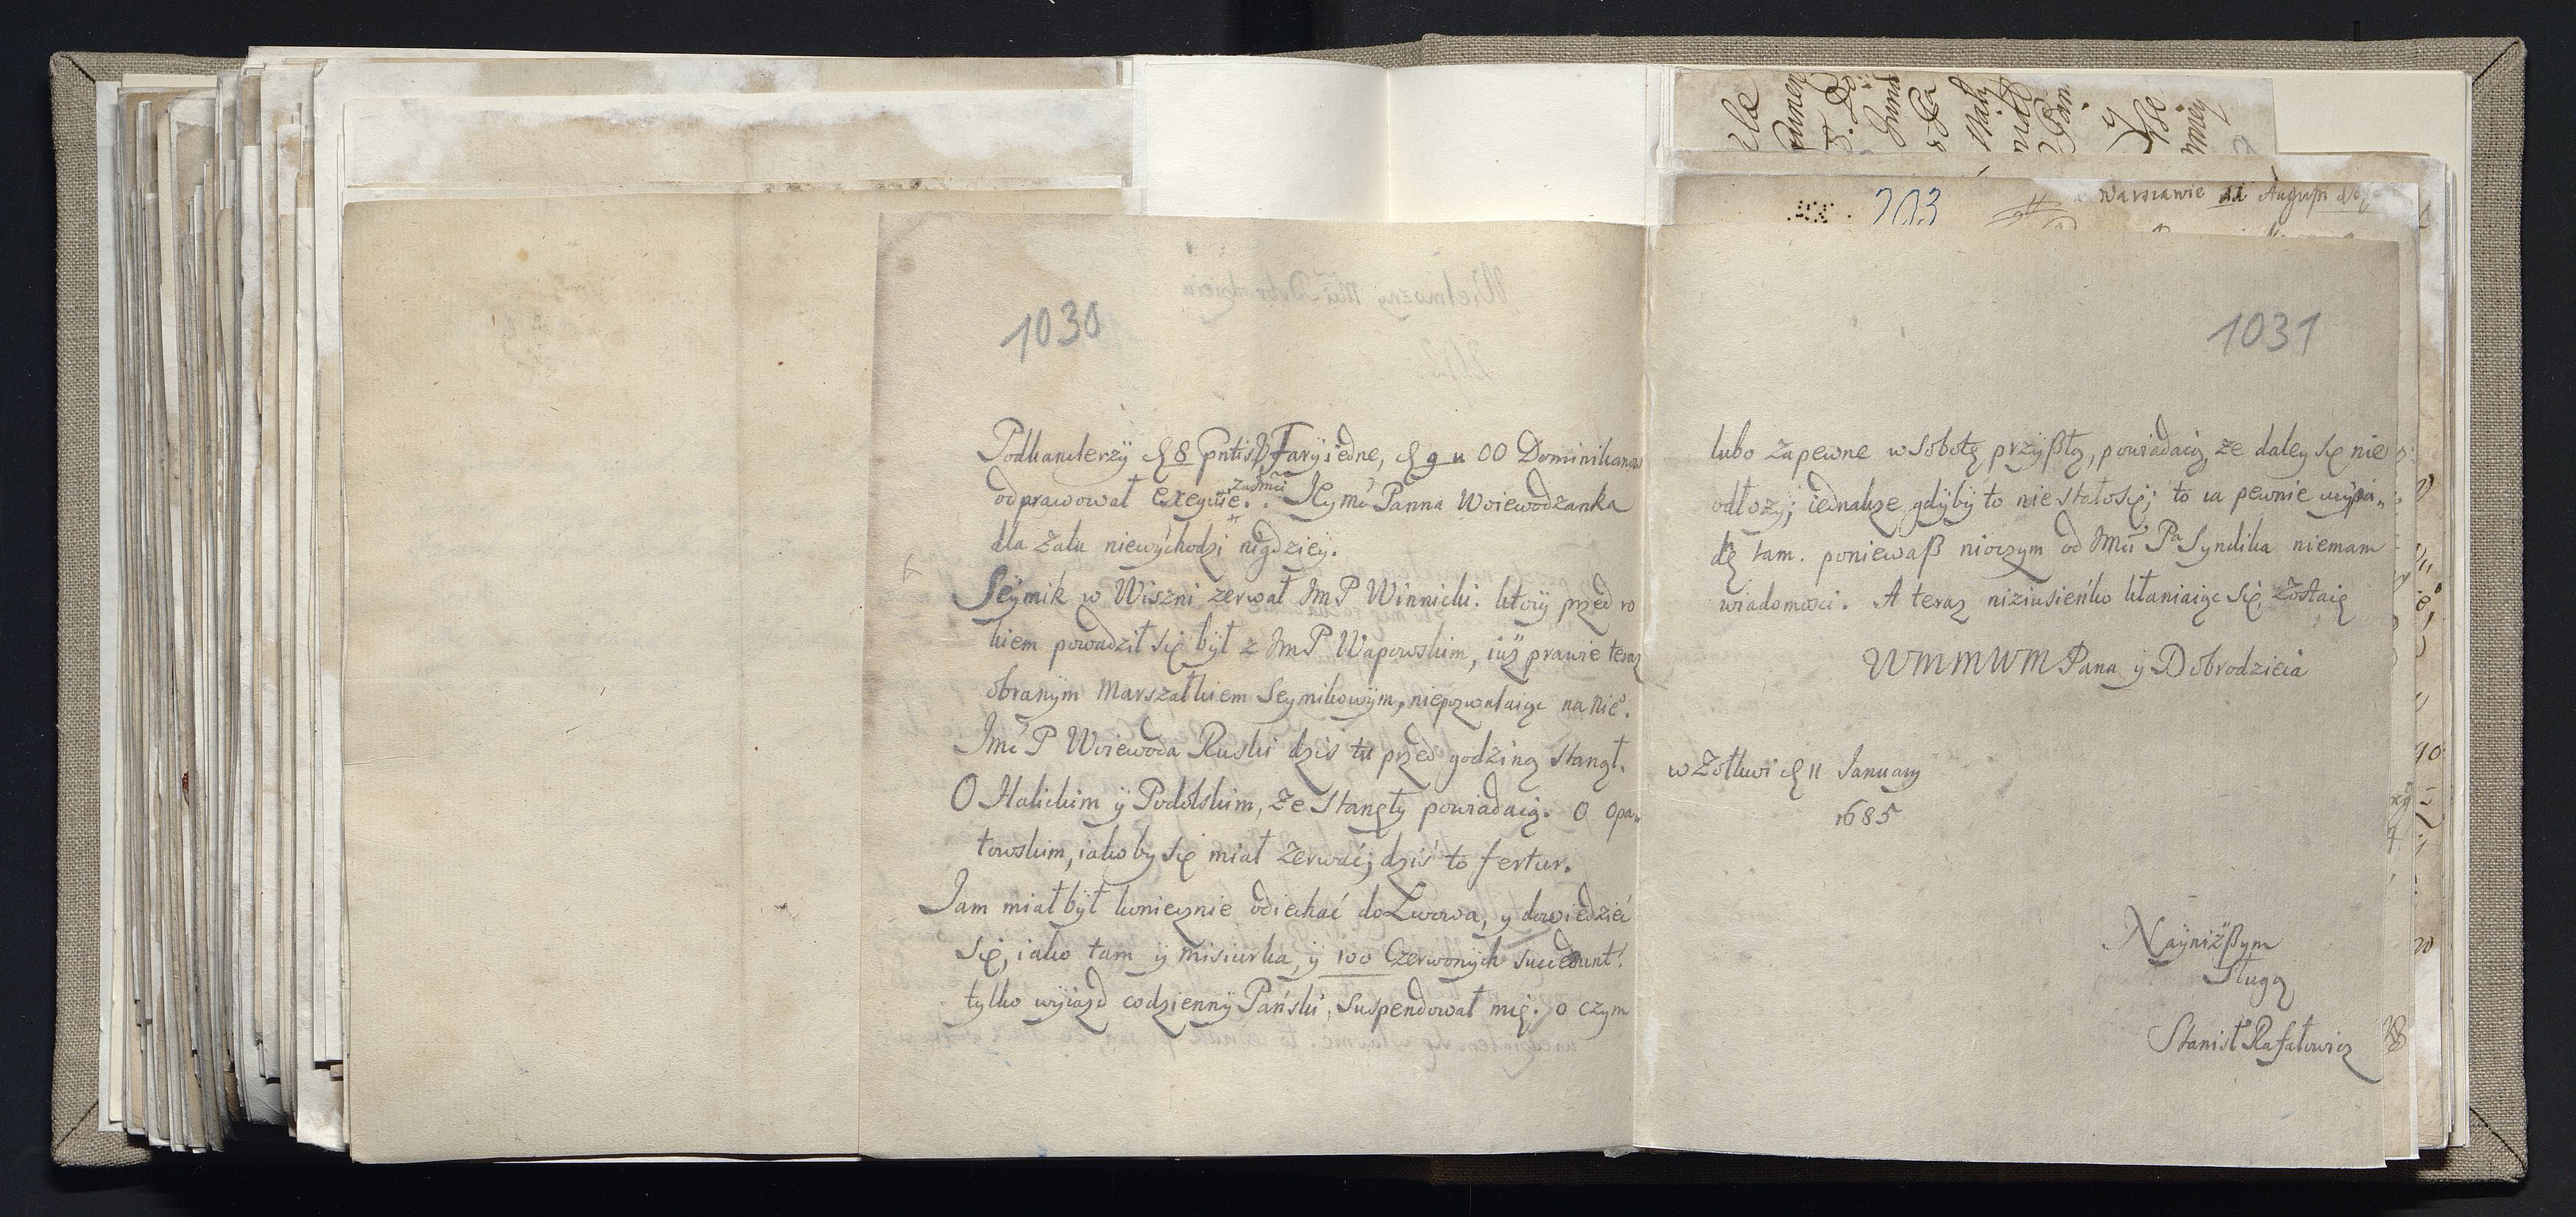 1030
Podkanclerzÿ d 8 pntis w Farÿ iedne, d 9 u OO Dominikanow
odprawował exequie. zasmci Jeymć Panna Woiewodzanka
dla żalu niewÿchodzi nigdzieÿ.
Seÿmik w Wiszni zerwał JmP Winnicki. ktorÿ przed ro
kiem powadził się bÿł z JmP Wapowskim, iuż prawie teraz
obranÿm Marszałkiem Seymikowÿm, niepozwalaiąc na nie°.
Jmć P Woiewoda Ruski dziś tu przed godziną stanął.
O Halickim ÿ Podolskim, że stanęły powiadaią. O Opa„
towskim, iakoby się miał zerwać; dziś to fertur.
Jam miał bÿł koniecznie odiechać do Lwowa, y dowiedzieć
się, iako tam ÿ misiurka, ÿ 100 Czerwonÿch succedunt.
tylko wÿiazd codziennÿ Pański, suspendował mię. o czym
1031
lubo zapewne w Sobotę przÿßłą, powiadaią, że daley się nie
odłożÿ; iednakże gdÿbÿ to nie stałosię; to ia pewnie wÿpa„
dę tam. ponieważ nioczym od Jmći Pa Syndika niemam
wiadomości. A teraz niziusieńko kłaniaiąc się, zostaię
WMMWM Pana ÿ Dobrodzieia
w Zołkwi d 11 January
1685
Nayniżßym
Sługą
Stanisł Rafałowicz
203
Warszawie 11 Augusti